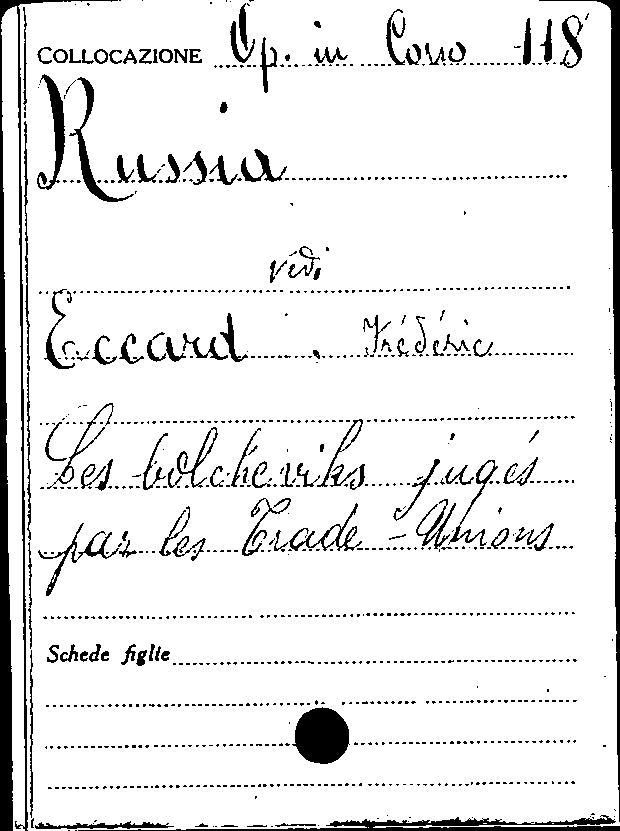 COLLOCAZIONE Op. in Corso 118
Russia
vedi
Eccard . Frédéric
Les bolcheviks jugés
par les Trade-Unions
Schede figlie